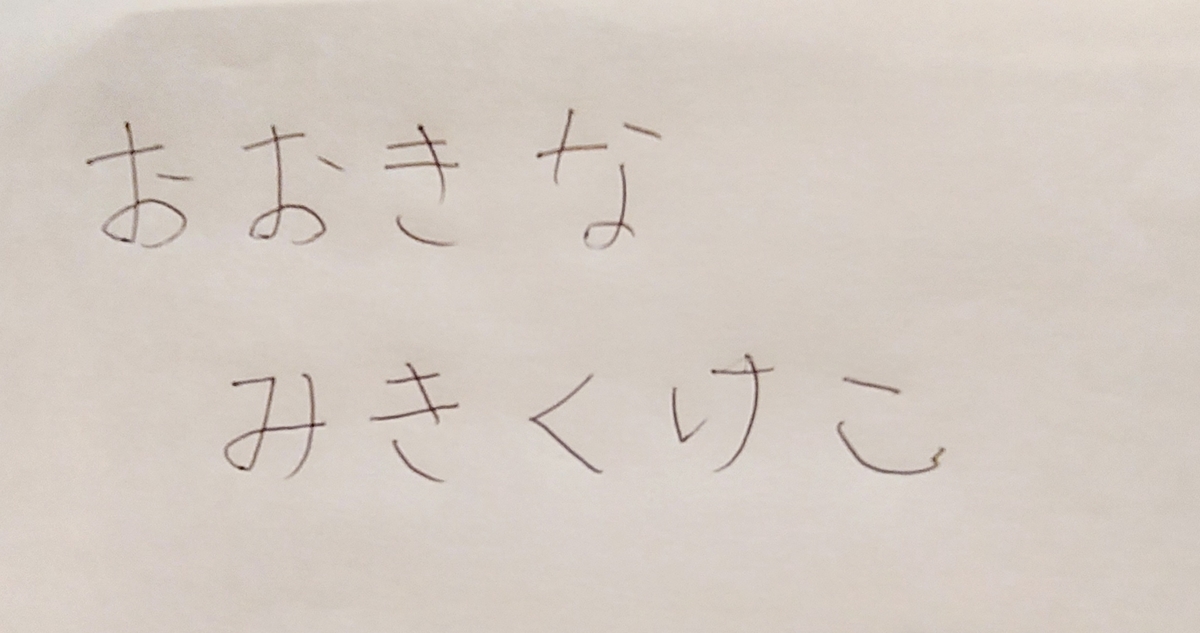 おおきな
みきくけこ